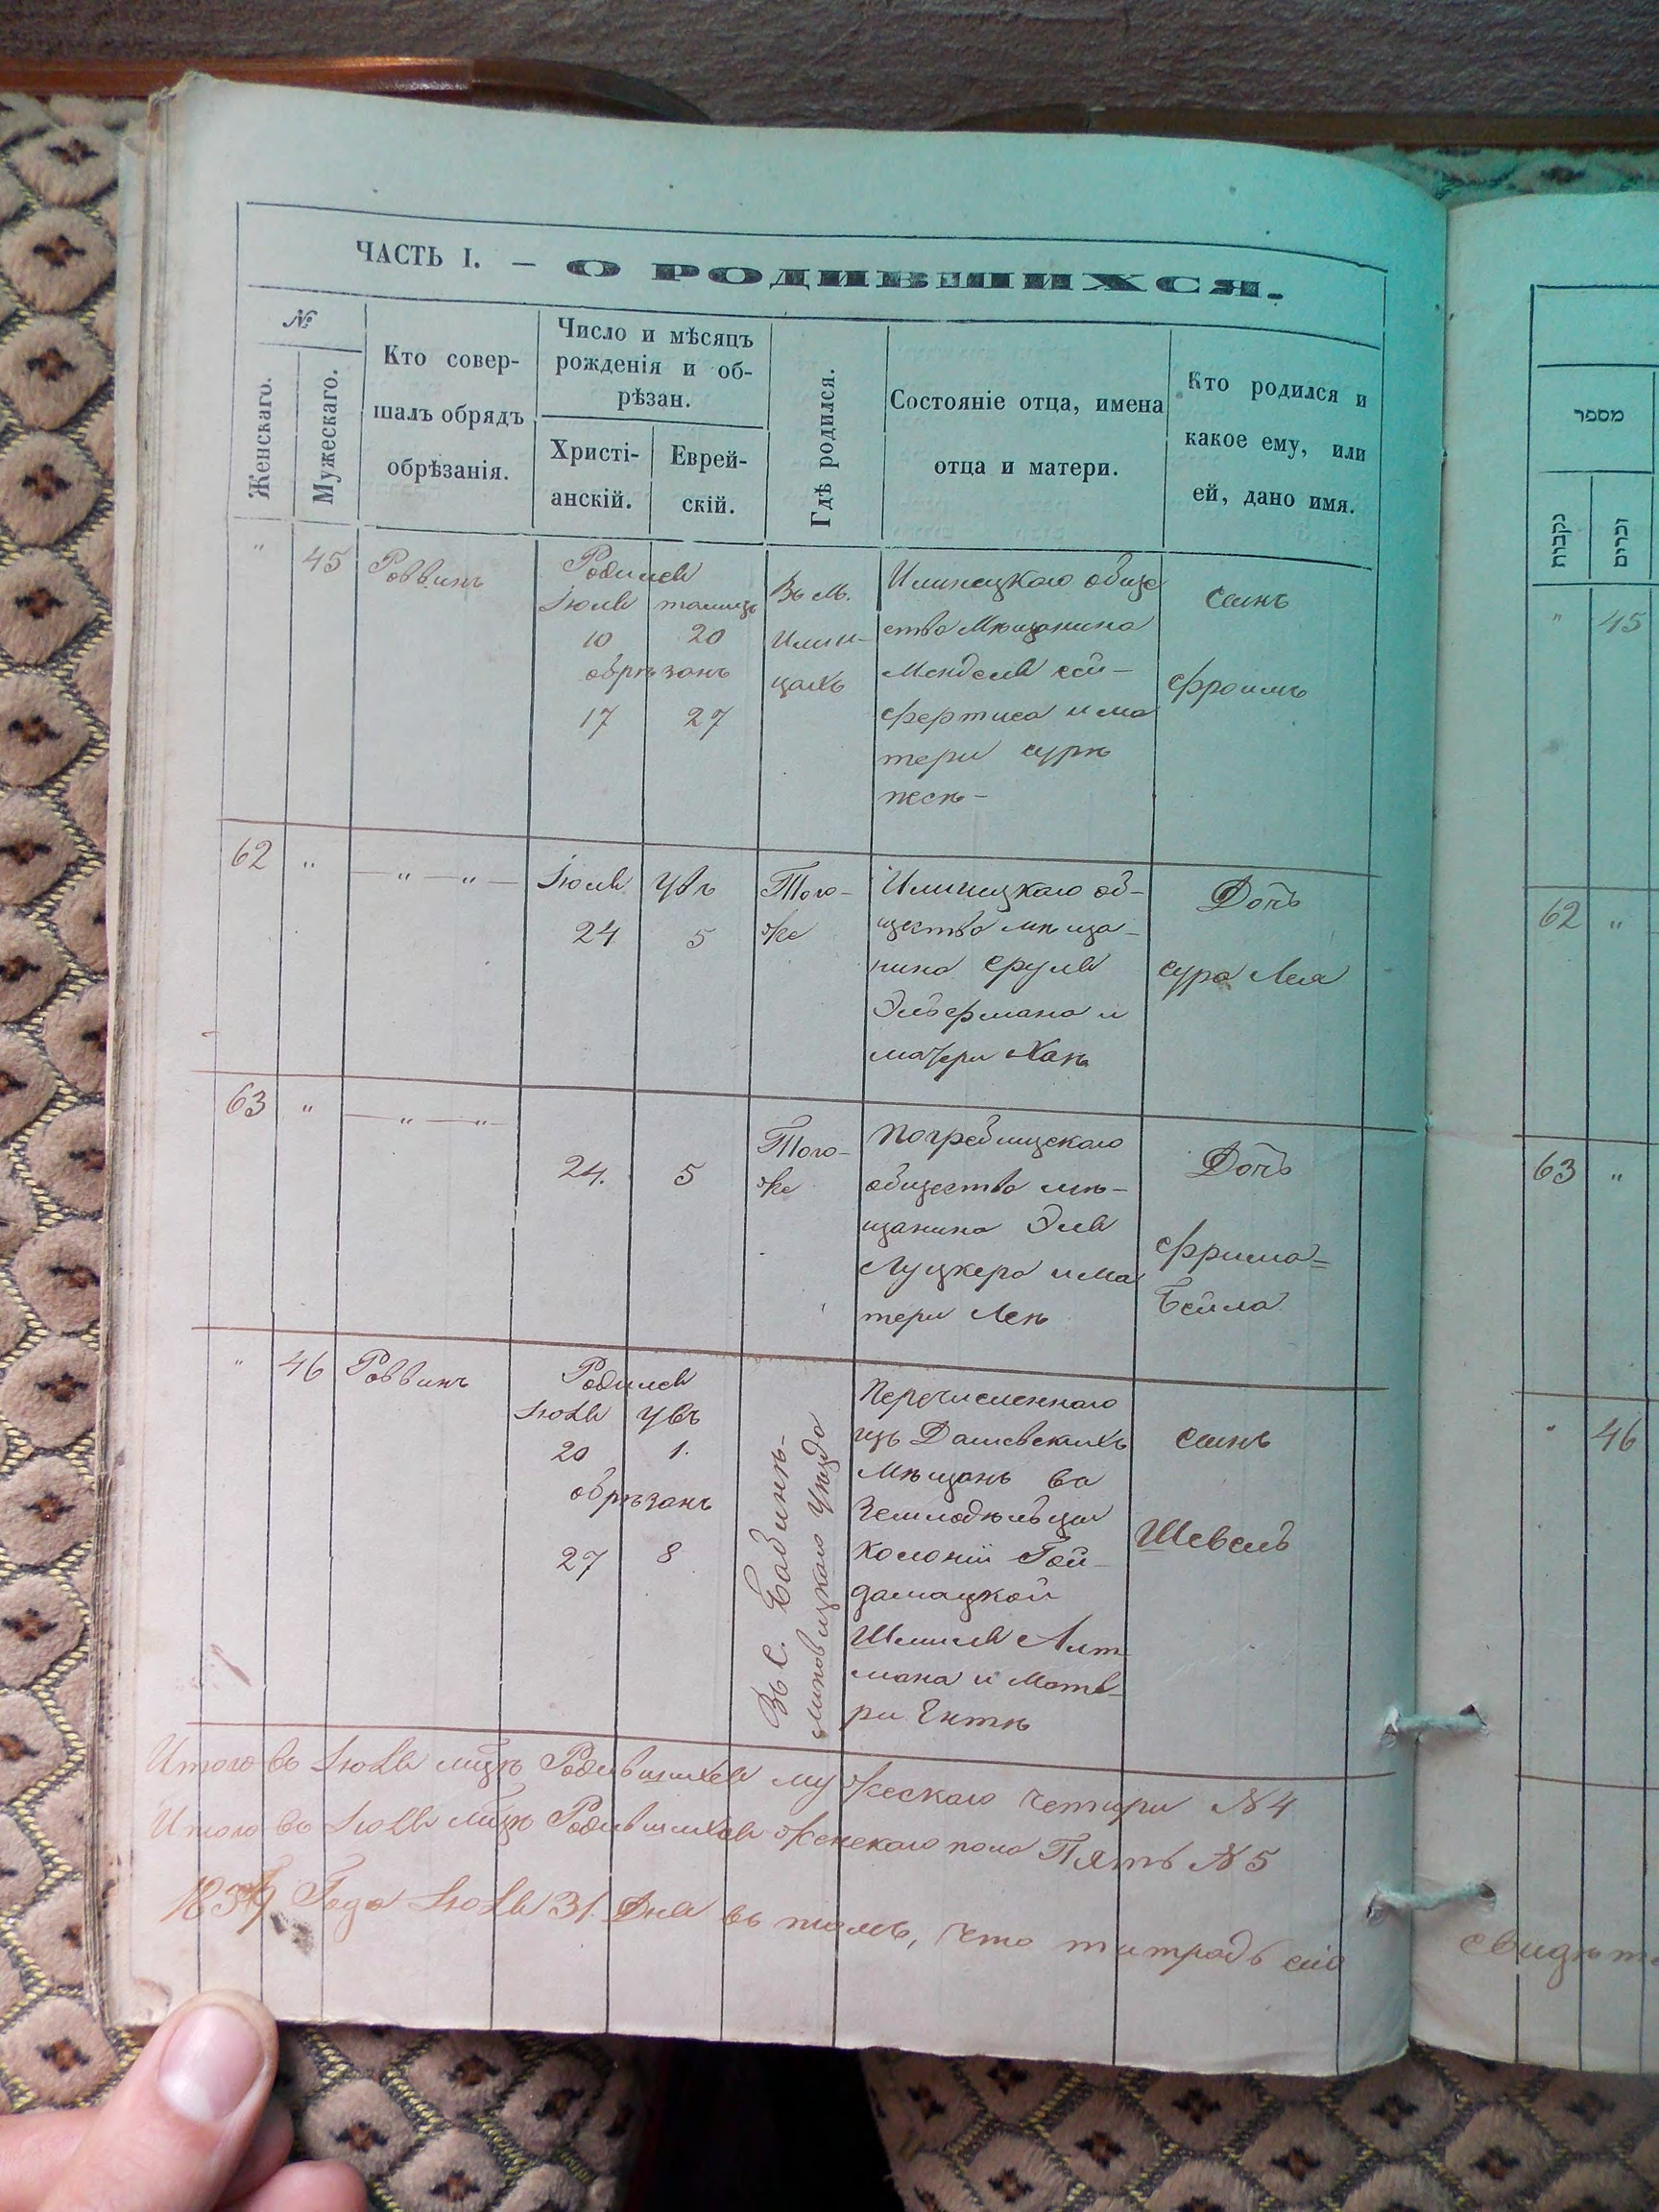 ЧАСТЬ I. — О РОДИВШИХСЯ.
№
Женскаго.
Мужескаго.
Кто совер-
шалъ обрядъ
обрѣзанія.
Число и мѣсяцъ
рожденія и об-
рѣзан.
Христі-
анскій.
Еврей-
скій.
Гдѣ родился.
Состояніе отца, имена
отца и матери.
Кто родился и
какое ему, или
ей, дано имя.
" 45 Раввинъ
Родился
Іюля
10 20
обрѣзанъ
17 27
Въ М.
Илин-
цахъ
Илинецкаго обще
ства Мѣщанина
Менделя
и ма
тери Сурѣ
Песѣ-
Сынъ
Фроимъ
62 " — " — " —
Іюля
24 5
Того-
же
Илинецкаго об-
щества мѣща-
нина Сруля
и
матери Ханѣ
Дочь
Сура Лея
63 " — " — " —
24. 5
Того-
же
Погребищскаго
общества мѣ-
щанина Эля
Луцкера и ма
тери Леѣ
Дочь
Фрима=
Бейла
" 46 Раввинъ
Родился
Іюля
20 1.
обрѣзанъ
27 8
Въ С. Бабинѣ-
Липовецкаго уѣзда
Перечисленнаго
изъ Дашевскихъ
Мѣщанъ въ
Земледѣльцы
Колоніи Гай-
дамацкой
Шмиля Алт-
мана и Мате-
ри Ентѣ
Сынъ
Шевель
Итого въ Іюлѣ мцѣ Родившихся мужескаго четыри № 4
Итого въ Іюлѣ мцѣ Родившихся женскаго пола Пять № 5
Года Іюля 31. Дня въ томъ, что титрадь сія
מספר
נקבות
זכרים
" 45
62 "
63 "
" 46